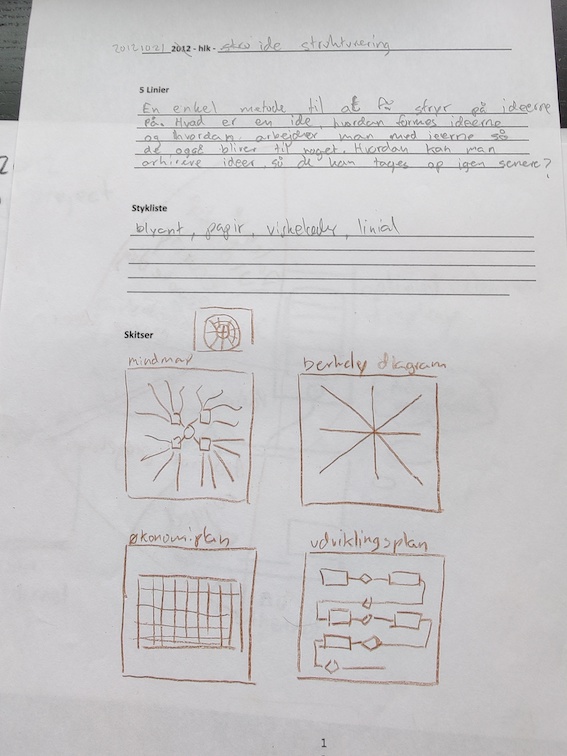 20121021 2012 - hlk - sko ide strukturering
5 Linier
En enkel metode til at få stryr på ideerne
På. Hvad er en ide, hvordan formes ideerne
og hvordan arbejder man med ieerne så
de også bliver til noget. Hvordan kan man
arhirere ideer, så de kan tages op igen senere?
Stykliste
blyant, papir, viskelæder, linial
Skitser
mindmap
berkely diagram
økonomiplan
udviklingsplan
1